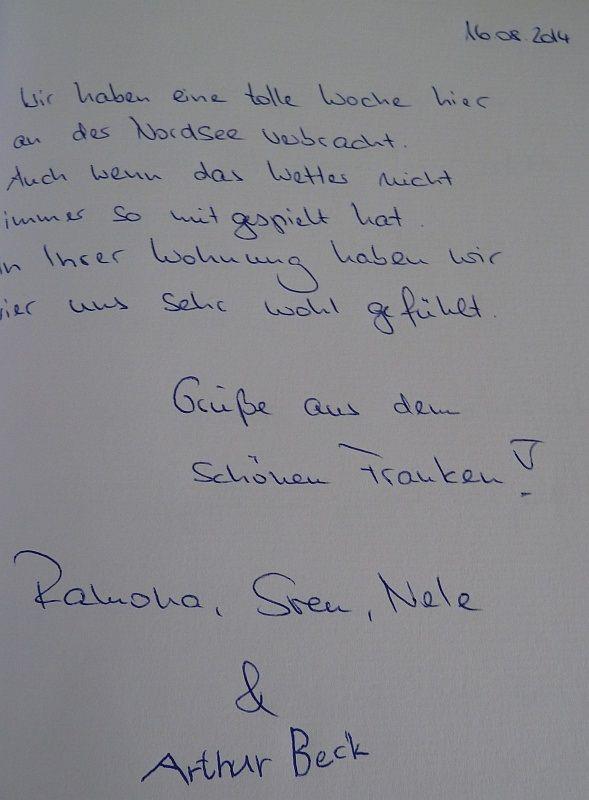 16.08.2014
Wir haben eine tolle Woche hier
an der Nordsee verbracht.
Auch wenn das Wetter nicht
immer so mitgespielt hat.
In Ihrer Wohnung haben wir
hier uns sehr wohl gefühlt.
Grüße aus dem
schönen Franken!
Ramona, Sven, Nele
&
Arthur Beck